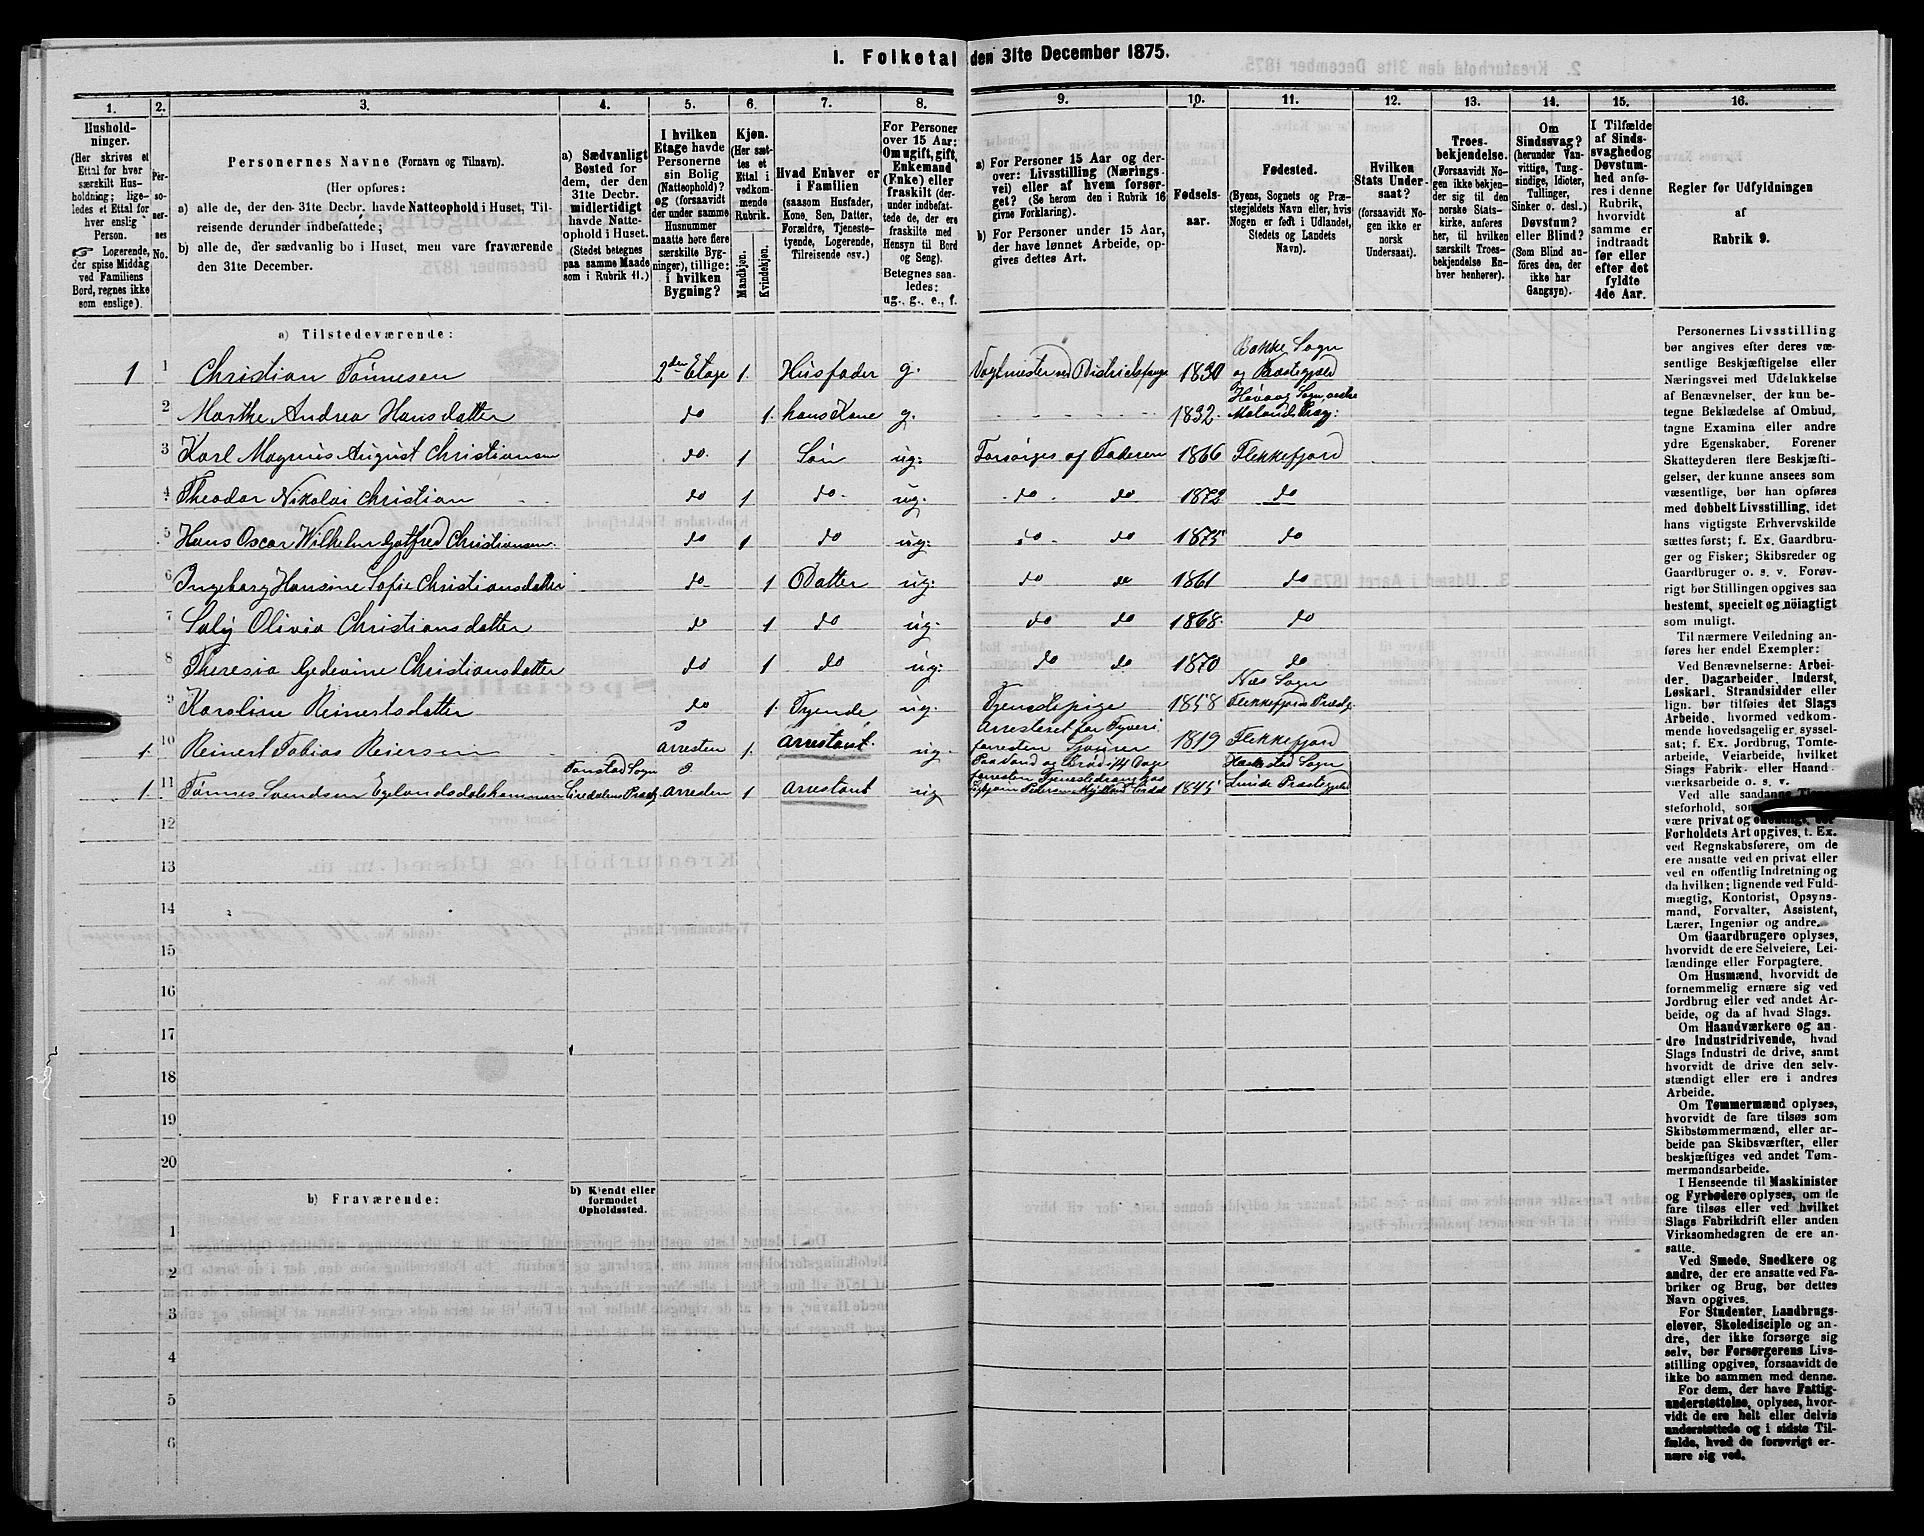 1. Folketal den 31te December 1875.
1. 2. 3. 4. 5. 6. 7. 8. 9. 10. 11. 12. 13. 14. 15. 16.
Hushold-
ninger.
(Her skrives et
Ettal for hver
særskilt Hus-
holdning; lige-
ledes et Ettal for
hver enslig
Person.
Logerende,
der spise Middag
ved Familiens
Bord, regnes ikke
som enslige).
Per-
so-
ner-
nes
No.
Personernes Navne (Fornavn og Tilnavn).
(Her opføres:
a) alle de, der den 31te Decbr. havde Natteophold i Huset, Til-
reisende derunder indbefattede;
b) alle de, der sædvanlig bo i Huset, men vare fraværende
den 31te December.
a) Sædvanligt
Bosted for
dem, der den
31te Decbr.
midlertidigt
havde Natte-
ophold i Huset.
(Stedet betegnes
paa samme Maade
som i Rubrik 11.)
I hvilken
Etage havde
Personerne
sin Bolig
(Natteophold)?
og (forsaavidt
der under samme
Husnummer
maatte høre flere
særskilte Byg-
ninger), tillige:
i hvilken
Bygning?
Kjøn.
(Her sæt-
tes et
Ettal i
vedkom-
mende
Rubrik.
Mandkjøn.
Kvindekjøn.
Hvad Enhver er
i Familien
(saasom Husfader,
Kone, Søn, Datter,
Forældre, Tjeneste-
tyende, Logerende,
Tilreisende osv.)
For Personer
over 15 Aar:
Om ugift, gift,
Enkemand
(Enke) eller
fraskilt (der-
under indbefat-
tede de, der ere
fraskilte med
Hensyn til Bord
og Seng).
Betegnes saa-
ledes:
ug., g., e., f.
a) For Personer 15 Aar og der-
over: Livsstilling (Nærings-
vei) eller af hvem forsør-
get? (Se herom den i Rubrik 16
givne Forklaring).
b) For Personer under 15 Aar,
der have lønnet Arbeide, op-
gives dettes Art.
Fødsels-
aar.
Fødested.
(Byens, Sognets og Præ-
stegjeldets Navn eller, hvis
Nogen er født i Udlandet,
Stedets og Landets
Navn).
Hvilken
Stats Under-
saat?
(forsaavidt No-
gen ikke er
norsk
Undersaat).
Troes-
bekjendelse.
(Forsaavidt No-
gen ikke bekjen-
der sig til den
norske Stats-
kirke, anføres
her, til hvilken
særskilt Troes-
bekjendelse En-
hver henhører).
Om
Sindssvag?
(herunder Van-
vittige, Tung-
sindige, Idioter,
Tullinger,
Sinker o. desl.)
Døvstum?
eller Blind?
(Som Blind an-
føres den, der
ikke har
Gangsyn).
I Tilfælde
af Sinds-
svaghed og
Døvstum-
hed anfø-
res i denne
Rubrik,
hvorvidt
samme er
indtraadt
før eller
efter det
fyldte
4de Aar.
Regler for Udfyldningen
af
Rubrik 9.
a) Tilstedeværende:
1 1 Christian Tønnesen 2den Etage 1. Husfader g. Vagtmester ved Districtsfængs 1830 Bakke Sogn og Præstegjeld
2 Marthe Andrea Hansdatter do 1. hans Kone g. 1832 Høvaag Sogn, vestre Molands Præg:
3 Karl Magnus August Christiansen do 1 Søn ug: Forsørges af Faderen 1866 Flekkefjord
4 Theodor Nikolai Christian do 1 do ug. do do 1872 do
5 Hans Oscar Wilhelm Gotfred Christiansen do 1 do ug: do do 1875 do
6 Ingeborg Hansine Sofie Christiansdatter do 1 Datter ug: do do 1861 do
7 Saly Olivia Christiansdatter do 1 do ug. do do 1868 do
8 Theresia Gedevine Christiansdatter do 1 do ug: do do 1870 do
9 Karoline Reinertsdatter do 1. Tyende ug. Tjenestepige 1858 Næs Sogn Flekkefjords Prædg.
1. 10 Reinert Tobias Reiersen Arresten 1. Arrestant. ug. Arresteret for Tyveri forresten 1819 Flekkefjord
1. 11 Tønnes Svendsen Egelandsdalskammen Tonstad Sogn Siredalens Prædg Arresten 1 Arrestant ug Paa Vand og Brød i 14 Dage forresten Tjenestedreng hos 1845 Sogn Lunde Præstegjeld
12
13
14
15
16
17
18
19
20
b) Fraværende:
b) Kjendt eller
formodet
Opholdssted.
1
2
3
4
5
6
Personernes Livsstilling
bør angives efter deres væ-
sentlige Beskjæftigelse eller
Næringsvei med Udelukkelse
af Benævnelser, der kun be-
tegne Beklædelse af Ombud,
tagne Examina eller andre
ydre Egenskaber. Forener
Skatteyderen flere Beskjæfti-
gelser, der kunne ansees som
væsentlige, bør han opføres
med dobbelt Livsstilling, idet
hans vigtigste Erhvervskilde
sættes først; f. Ex. Gaardbru-
ger og Fisker; Skibsreder og
Gaardbruger o. s. v. Forøv-
rigt bør Stillingen opgives saa
bestemt, specielt og nöiagtigt
som muligt.
Til nærmere Veiledning an-
føres her endel Exempler:
Ved Benævnelserne: Arbei-
der, Dagarbeider, Inderst,
Løskarl, Strandsidder eller
lign. bør tilføies det Slags
Arbeide, hvormed vedkom-
mende hovedsagelig er syssel-
sat; f. Ex. Jordbrug, Tomte-
arbeide, Veiarbeide, hvilket
Slags Fabrik- eller Haand
værksarbeide o. s. v.
Ved alle saadanne Tjene-
steforhold, som
være privat og offentlige, bør
Forholdets Art opgives, t. Ex.
ved Regnskabsførere, om de
ere ansatte ved en privat eller
ved en offentlig Indretning og
da hvilken; lignende ved Fuld-
mægtig, Kontorist, Opsyns-
mand, Forvalter, Assistent,
Lærer, Ingeniør og andre.
Om Gaardbrugere oplyses,
hvorvidt de ere Selveiere, Lei-
lændinge eller Forpagtere.
Om Husmænd, hvorvidt de
fornemmelig ernære sig ved
Jordbrug eller ved andet Ar-
beide, og da af hvad Slags.
Om Haandværkere og an-
dre Industridrivende, hvad
Slags Industri de drive, samt
hvorvidt de drive den selv-
stændigt eller ere i andres
Arbeide.
Om Tømmermænd oplyses,
hvorvidt de fare tilsøs som
Skibstømmermænd, eller ar-
beide paa Skibsværfter, eller
beskjæftiges ved andet Tøm-
mermandsarbeide.
I Henseende til Maskinister
og Fyrbødere oplyses, om de
fare tilsøs eller ved hvilket
Slags Fabrikdrift eller anden
Virksomhedsgren de ere an-
satte.
Ved Smede, Snedkere og
andre, der ere ansatte ved Fa-
briker og Brug, bør dettes
Navn opgives.
For Studenter, Landbrugs-
elever, Skoledisciple og an-
dre, der ikke forsørge sig
selv, bør Forsørgerens Livs-
stilling opgives, forsaavidt de
ikke bo sammen med denne.
For dem, der have Fattig-
understøttelse, oplyses, hvor-
vidt de ere helt eller delvis
understøttede og i sidste Til-
fælde, hvad de forøvrigt er-
nære sig ved.